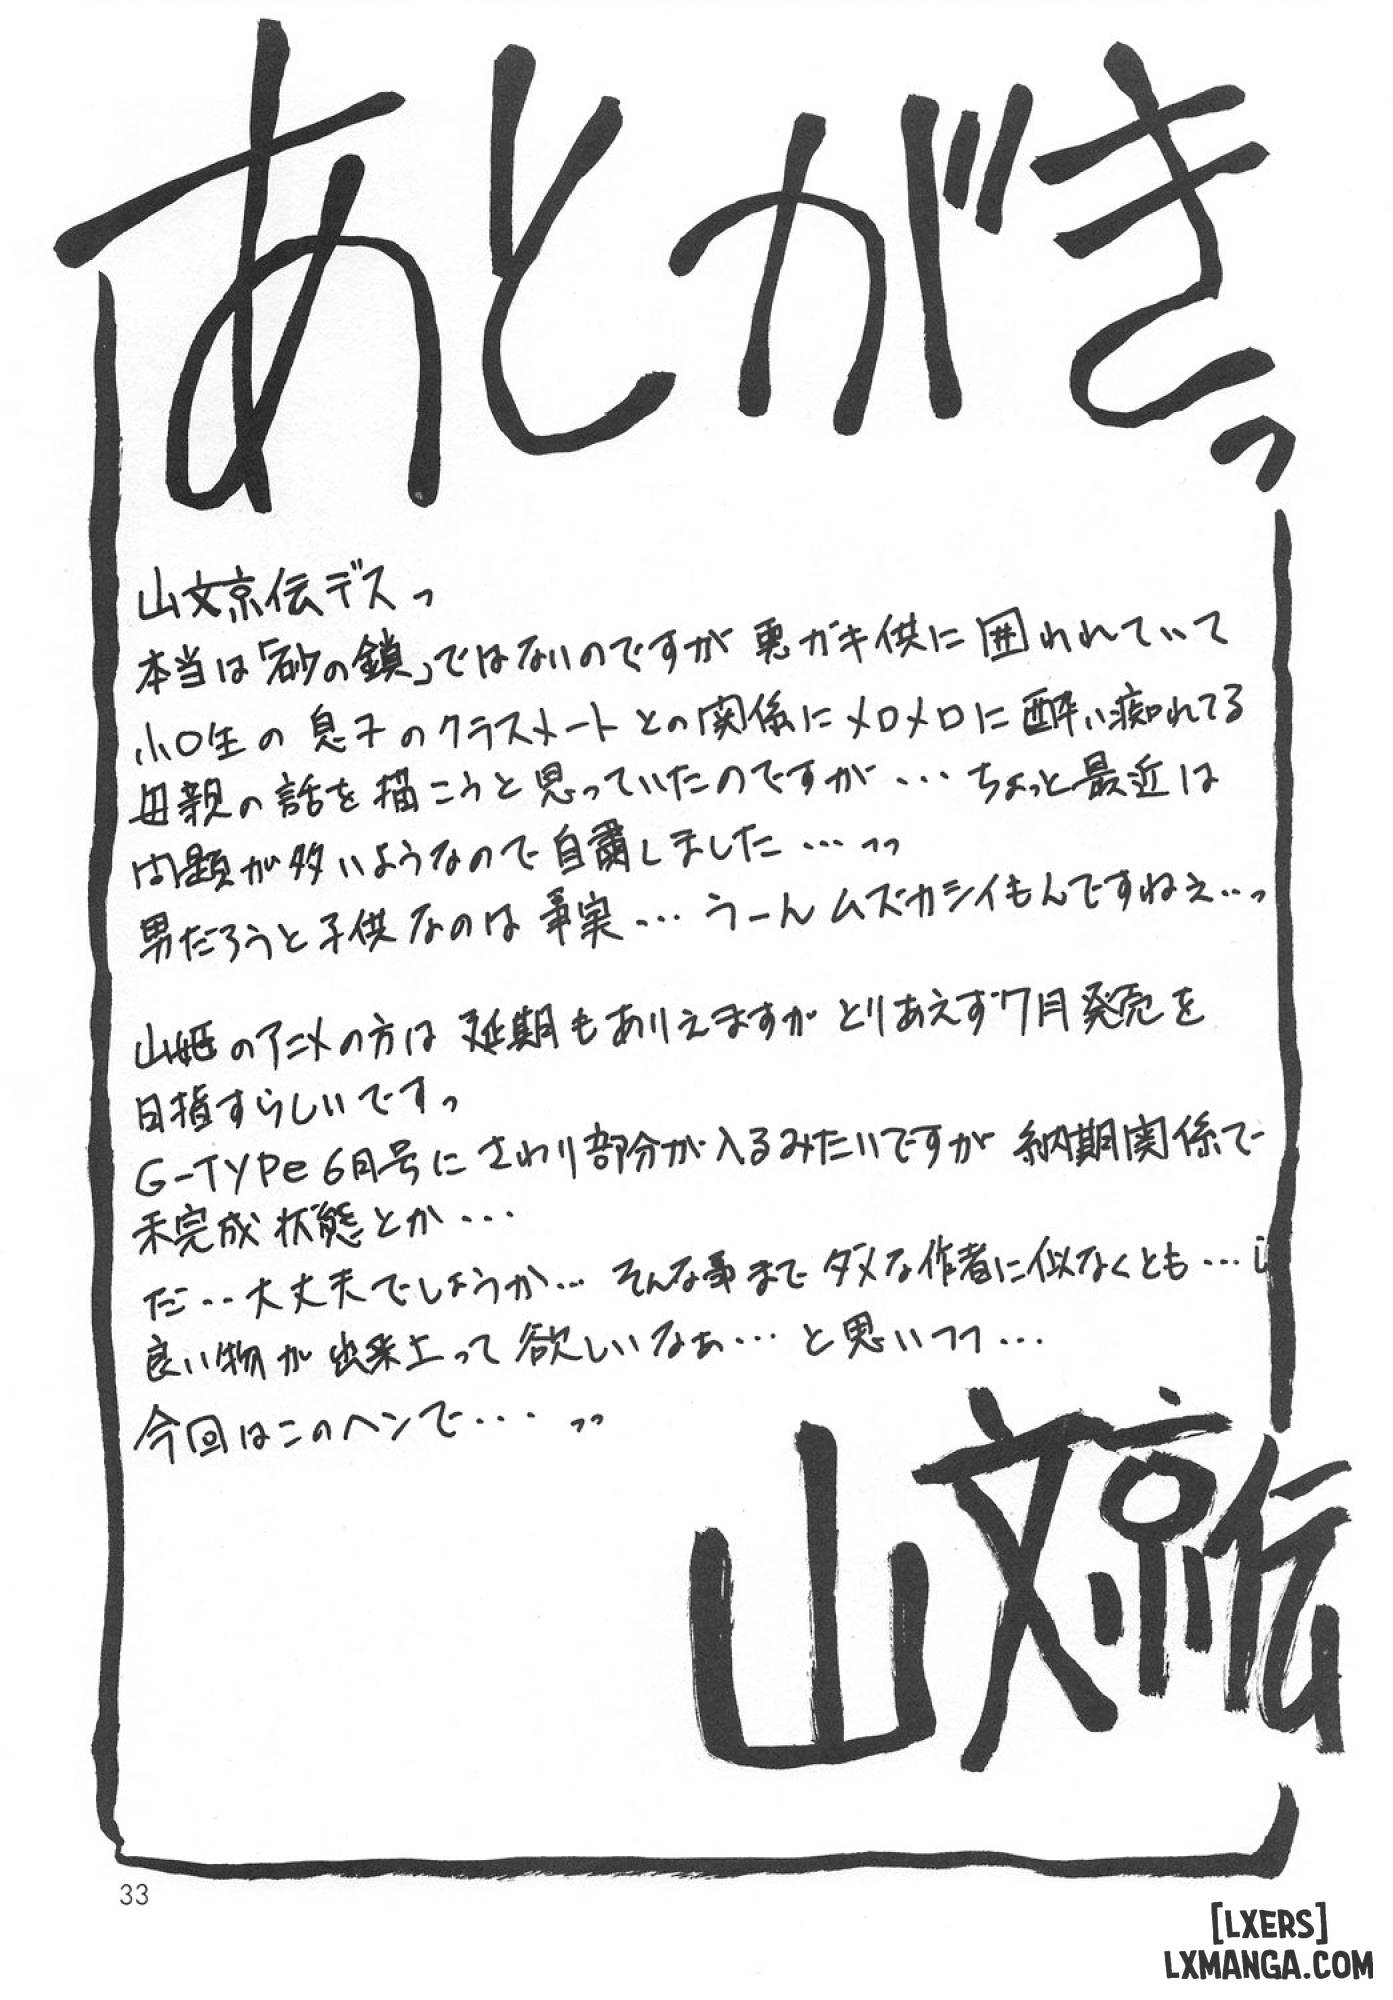 あとがきっ
山文京伝デスっ
本当は「砂の鎖」ではないのですが悪ガキ供に囲われていて
小〇生の息子のクラスメートとの関係にメロメロに酔い痴れてる
母親の話を描こうと思っていたのですが・・・ちょっと最近は
問題が多いようなので自粛しました・・・っっ
男だろうと子供なのは事実・・・うーんムズカシイもんですねえ・・・っ
山姫のアニメの方は延期もありえますがとりあえず7月発売を
目指すらしいですっ
G-TYPe6月号にさわり部分が入るみたいですが納期関係で
未完成状態とか・・・
だ・・・大丈夫でしょうか・・・そんな事までダメな作者に似なくとも・・・
良い物が出来上って欲しいなぁ・・・と思いつつ・・・
今回はこのヘンで・・・っっ
山文京伝
33
[LXERS]
LXMANGA.COM